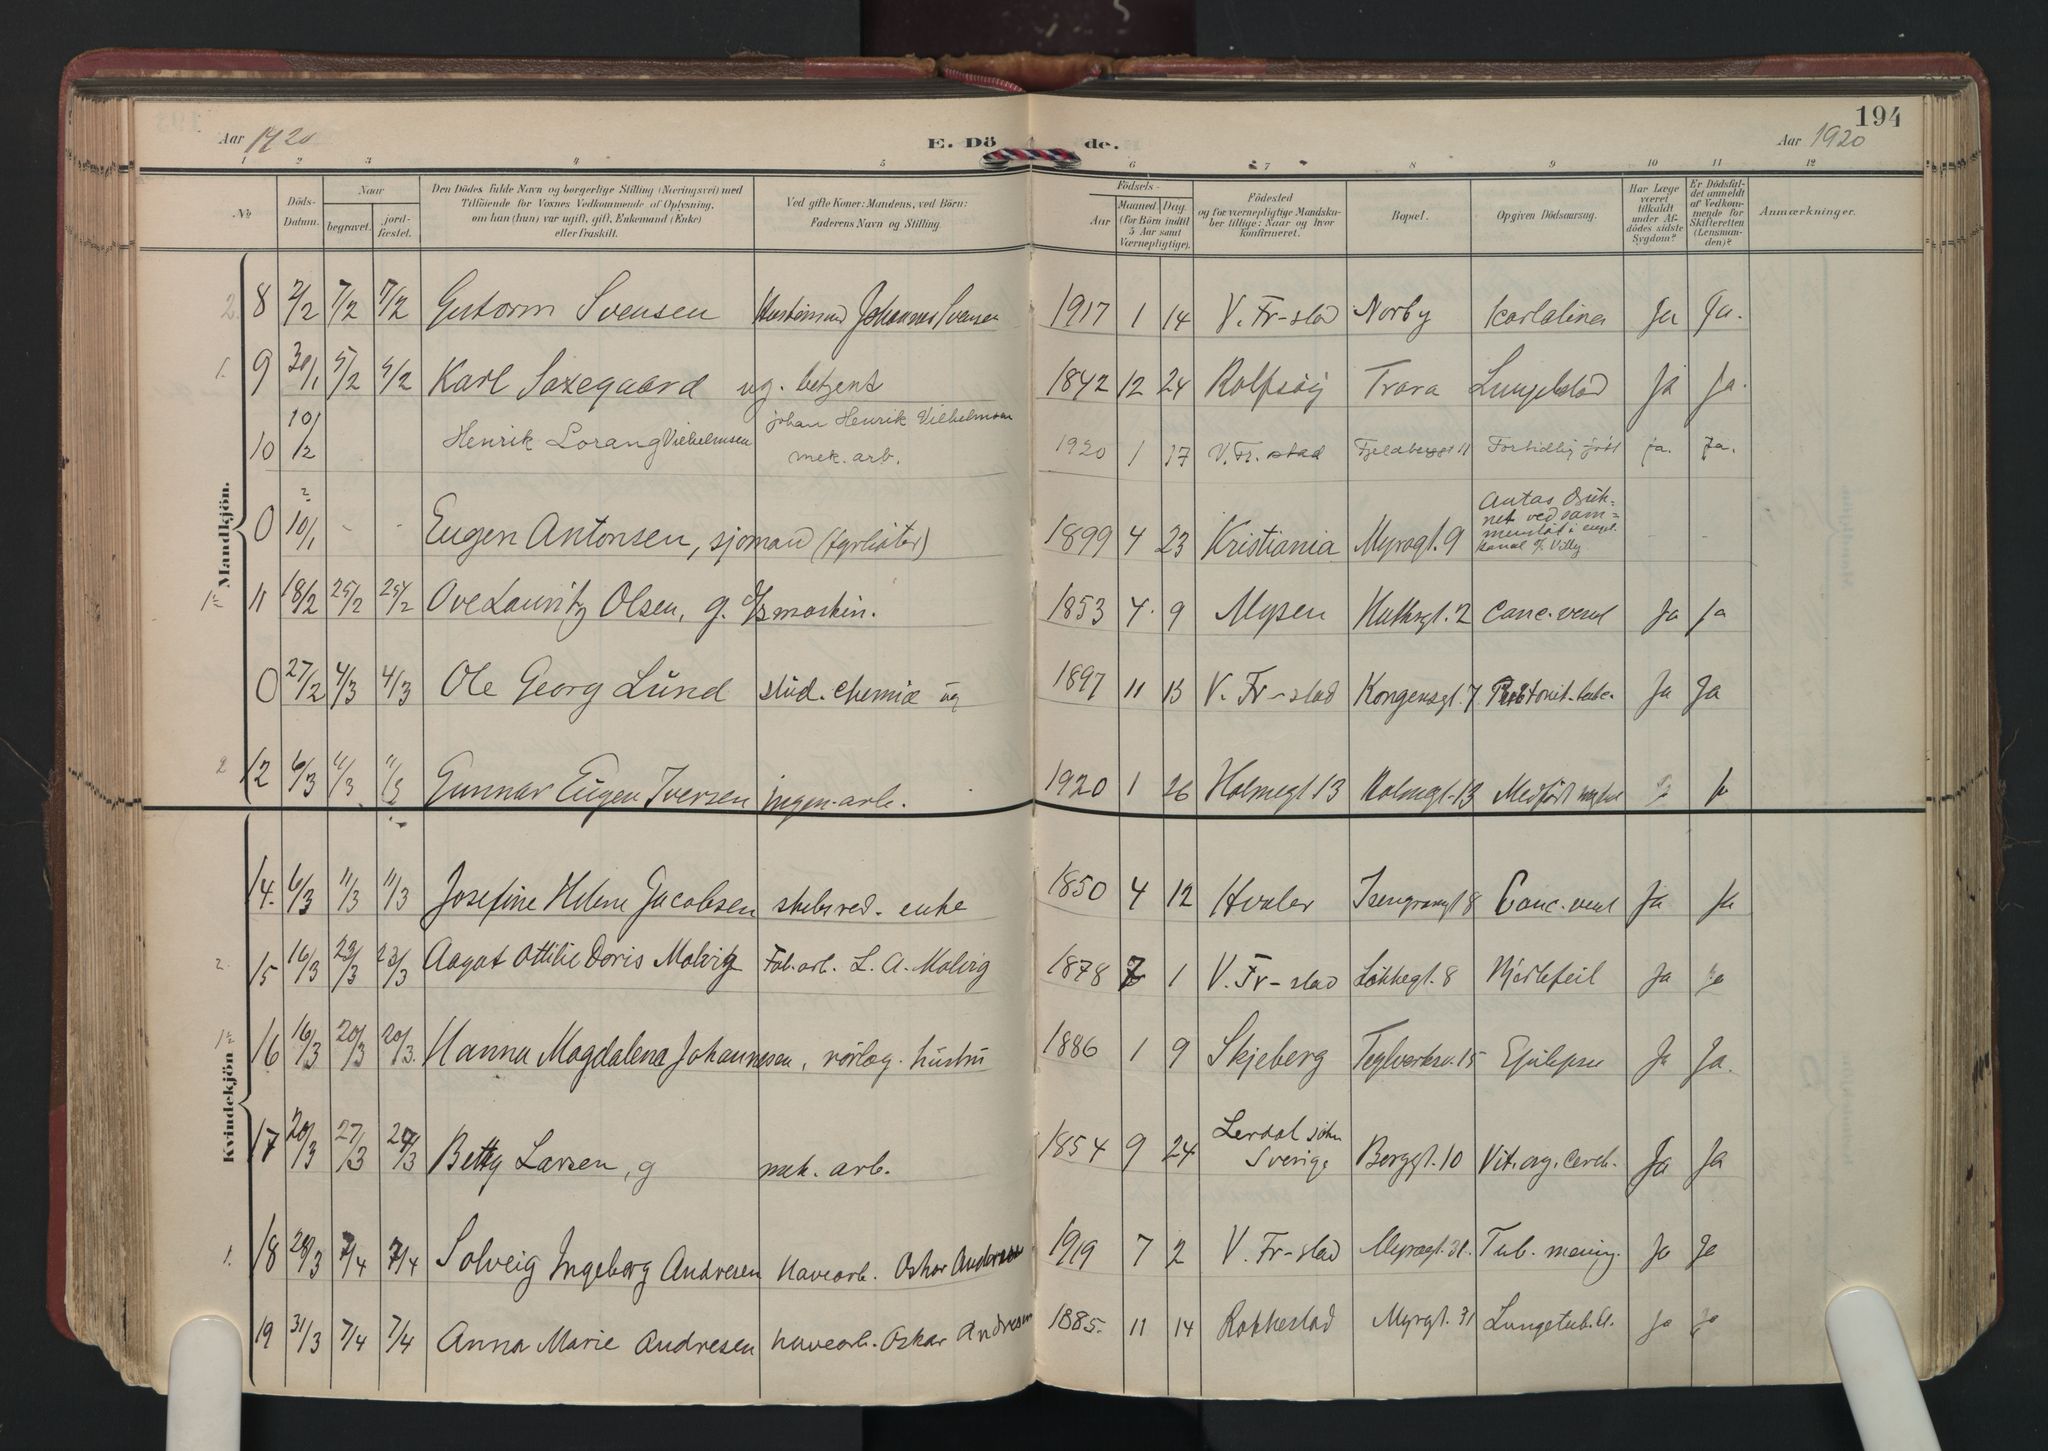 194
Aar 1920
E. Dö de.
Aar 1920
1 2 3 4 5 6 7 8 9 10 11 12
№
Döds-Datum.
Naar
begravet.
jord-fæstet.
Den Dödes fulde Navn og borgerlige Stilling (Næringsvei) med
Tilföiende for Voxnes Vedkommende af Oplysning,
om han (hun) var ugift, gift, Enkemand (Enke)
eller fraskilt.
Ved gifte Koner: Mandens, ved Börn:
Faderens Navn og Stilling.
Födsels-
Aar
Maaned Dag
(for Börn indtil
5 Aar samt
Værnepligtige).
Födested
og for værnepligtige Mandskaber tillige: Naar og hvor
konfirmeret.
Bopæl.
Opgiven Dödsaarsag.
Har Læge
været
tilkaldt
under Afdödes sidste
Sygdom?
Er Dödsfaldet anmeldt
af Vedkommende for
Skifteretten
(Lensmanden)?
Anmærkninger.
Mandkjön.
2. 8 2/2 7/2 7/2 Gutorm Svensen Johannes Svensen 1917 1 14 V. Fr-stad Norby Ja Ja.
1. 9 30/1 5/2 5/2 Karl Saxegaard ug. betjent 1842 12 24 Rolfsöy Trara Ja Ja.
10 10/2 Henrik Lorang Vilhelmsen Johan Henrik Vilhelmsen
mek. arb. 1920 1 V. Fr. stad Fjeldberggt 11 Fortidlig født ja. Ja.
0 10/1 - - Eugen Antonsen, sjömand (fyrböter) 1899 4 23 Kristiania Myragt. 9 Antas druk-
net ved sam-
menstöt i engel.
kanal - -
11 18/2 25/2 25/2 Ove Lauritz Olsen, g. maskin. 1853 4. 9 Mysen 2 Canc. ventr Ja Ja
0 27/2 4/3 4/3 Ole Georg Lund stud. chemiæ ug 1897 11 13 V. Fr-stad Kongensgt. 7 Peritonit. tub. Ja Ja
2 12 6/3 11/3 11/3 Gunnar Eugen Iversen arb. 1920 1 26 Holmegt 13 Holmegt. 13 Medfødt Ja
Kvindekjön
14. 6/3 11/3 11/3 Josefine Helene Jacobsen skibsred. enke 1850 4 12 Hvaler 8 Canc. ventr Ja Ja
2. 15 16/3 23/3 23/3 Aagot Ottilie Doris Malvig Fab. arb. L. A. Malvig 1878 7 1 V. Fr-stad Løkkegt. 8 Hjertefeil Ja Ja
16 16/3 20/3 20/3 Hanna Magdalena Johannesen, rörlæg. hustru 1886 1 9 Skjeberg Teglverksv. 15 Epilepsi Ja Ja.
17 20/3 27/3 27/3 Betty Larsen, g mek. arb. 1854 9 24 Lerdal sokn
Sverige Berggt. 10 Vit. org. cereb. Ja Ja
1. 18 28/3 7/4 7/4 Solveig Ingeborg Andresen havearb. Oskar Andresen 1919 7 2 V. Fr-stad Myragt. 31. Tub. mening. Ja Ja
19 31/3 7/4 7/4 Anna Marie Andresen havearb. Oskar Andresen 1885. 11 14 Rakkestad Myragt. 31 Lungetub. Ja Ja